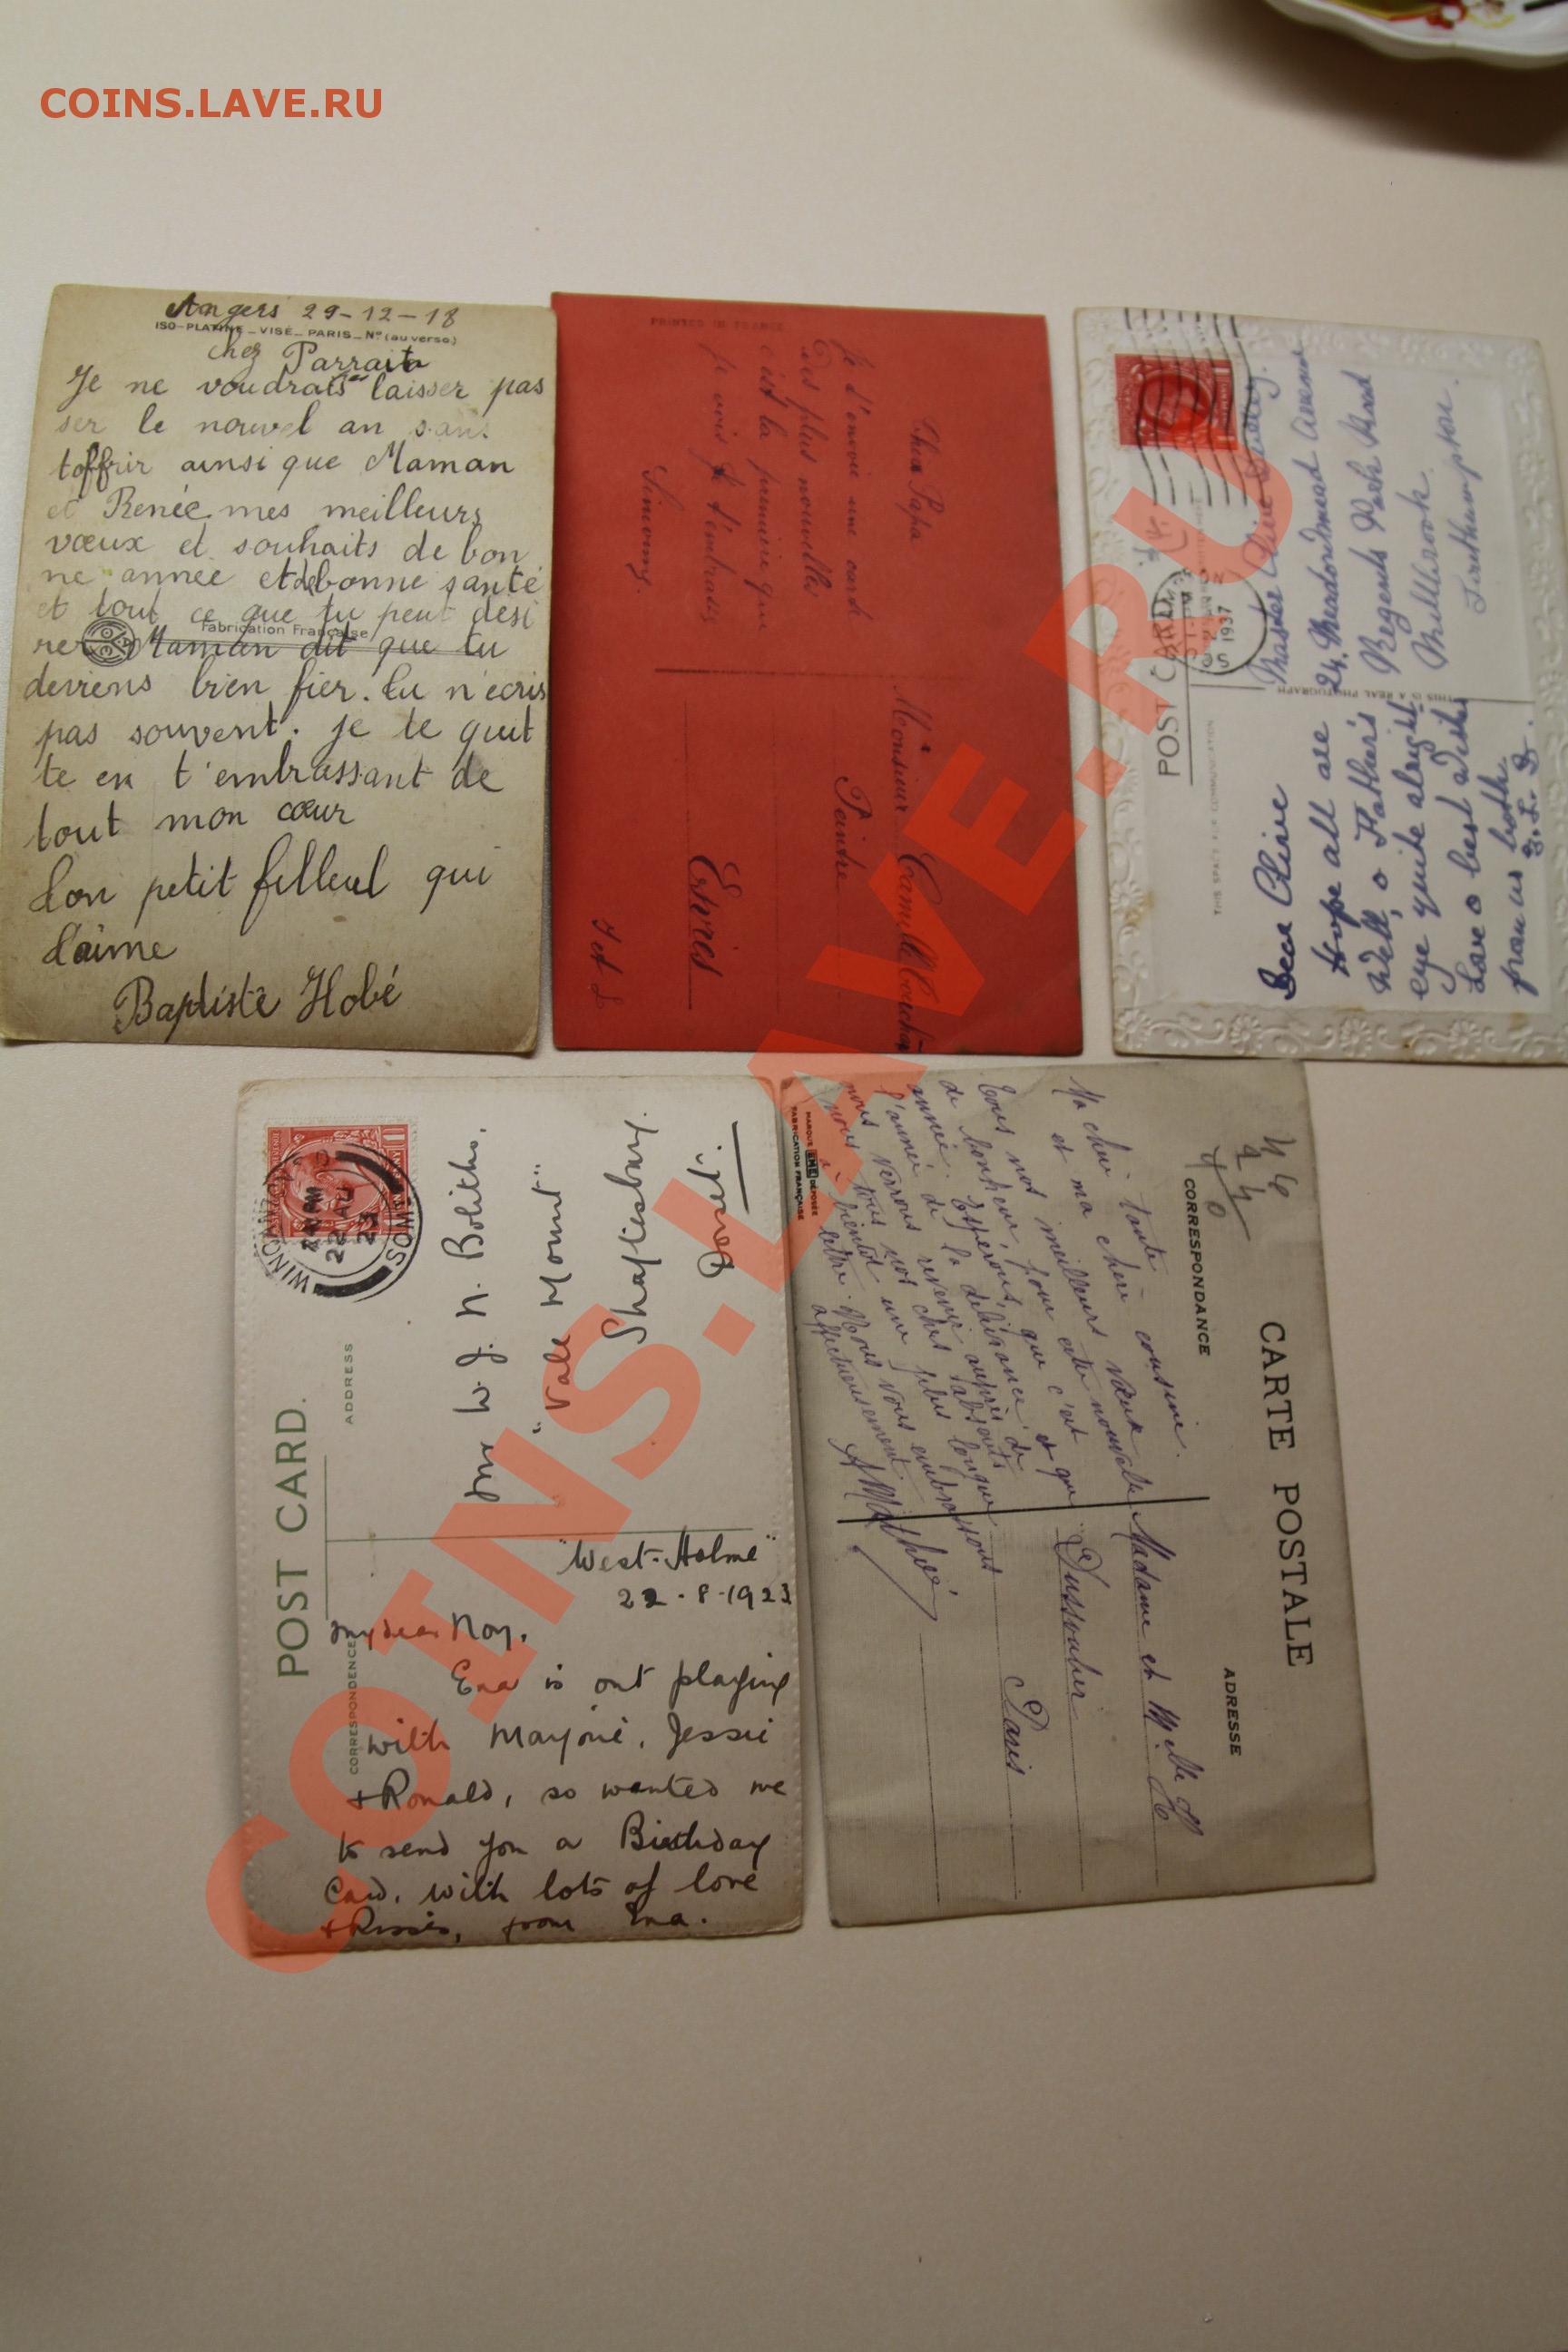 COINS.LAVE.RU
Angers 29-12-18
ISO-PLATINE_VISÉ_PARIS_Nº (au verso)
chez Parrain
Je ne voudrais laisser pas
ser le nouvel an sans
t'offrir ainsi que Maman
et Renée mes meilleurs
vœux et souhaits de bon
ne année et de bonne santé
et tout ce que tu peut desi
Fabrication Française
rer Maman dit que tu
deviens bien fier. tu n'ecris
pas souvent. je te quit
te en t'embrassant de
tout mon cœur
Ton petit filleul qui
t'aime
Baptiste Hobé
PRINTED IN FRANCE
Cher Papa
Je t'envoie une card
des plus nouvelle
c'est la première que
je vois je t'embrasse
Simone
Monsieur Camille
Peintre
Esvres
POST CARD
1937
THIS SPACE FOR COMMUNICATION
THIS IS A REAL PHOTOGRAPH
Master Clive
24, Meadowmead Avenue
Regents Park Road
Millbrook
Dear Clive
Hope all are
Well, & Father's
eye quite alright
Love & best wishes
from us both
POST CARD.
ADDRESS
WINCANTON
SOM
22 AU
23
W. J. N. Bolitho.
"Vale Mount"
Shaftesbury.
Dorset.
CORRESPONDENCE
"West-Holme"
22-8-1923
My dear Roy,
Ena is out playing
with Marjorie, Jessie
+ Ronald, so wanted me
to send you a Birthday
Card, with lots of love
+ Kisses, from Ena.
CARTE POSTALE
CORRESPONDANCE
ADRESSE
MARQUE DÉPOSÉE
FABRICATION FRANÇAISE
Ma chère tante
et ma chère cousine.
Tous nos meilleurs vœux
de bonheur pour cette nouvelle
année. Espérons, que c'est
l'année de la délivrance et que
nous verrons revenir auprès de
nous tous nos chers absents
à bientôt une plus longue
lettre. Nous vous embrassons
affectueusement
Madame et Melle
Paris
COINS.LAVE.RU